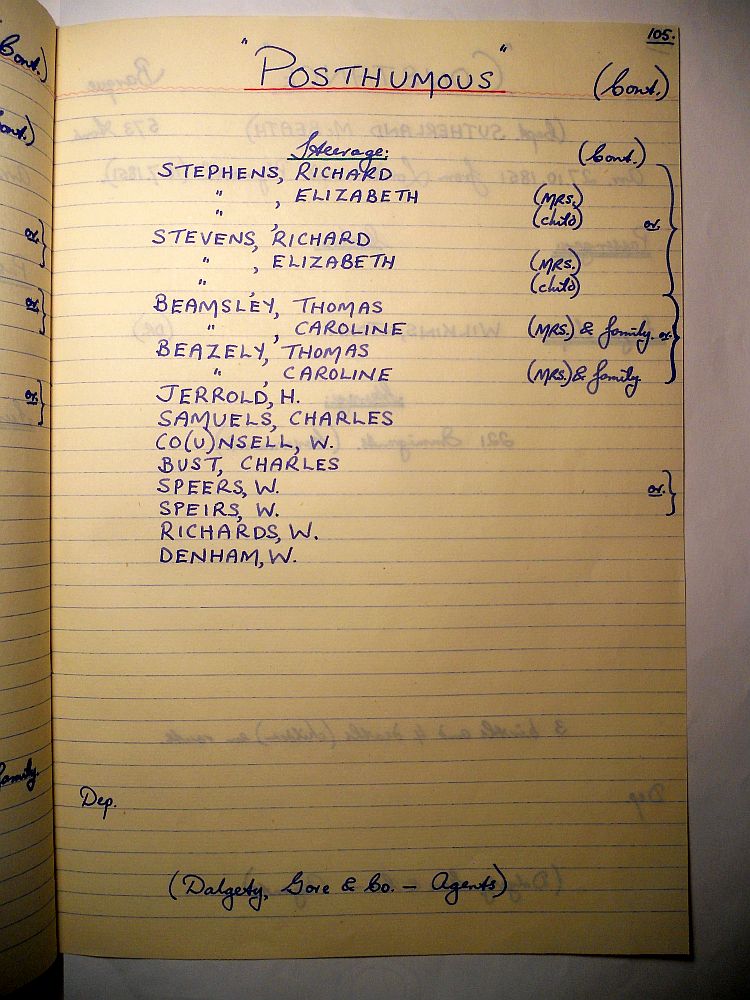 105.
"POSTHUMOUS" (Cont.)
Steerage: (Cont.)
STEPHENS, RICHARD
" , ELIZABETH (MRS.)
" , (child) or.
STEVENS, RICHARD
" , ELIZABETH (MRS.)
" , (child)
BEAMSLEY, THOMAS
" , CAROLINE (MRS.) & family. or.
BEAZELY, THOMAS
" , CAROLINE (MRS.) & family
JERROLD, H.
SAMUELS, CHARLES
CO(U)NSELL, W.
BUST, CHARLES
SPEERS, W. or.
SPEIRS, W.
RICHARDS, W.
DENHAM, W.
Dep.
(Dalgety, Gore & Co. — Agents)